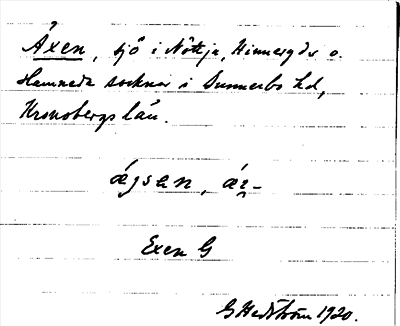 Axen, sjö i Nöttja, Hinneryds o.
Hamneda socknar i Sunnerbo hd,
Kronobergs län.
Exen G
G Hedström 1920.